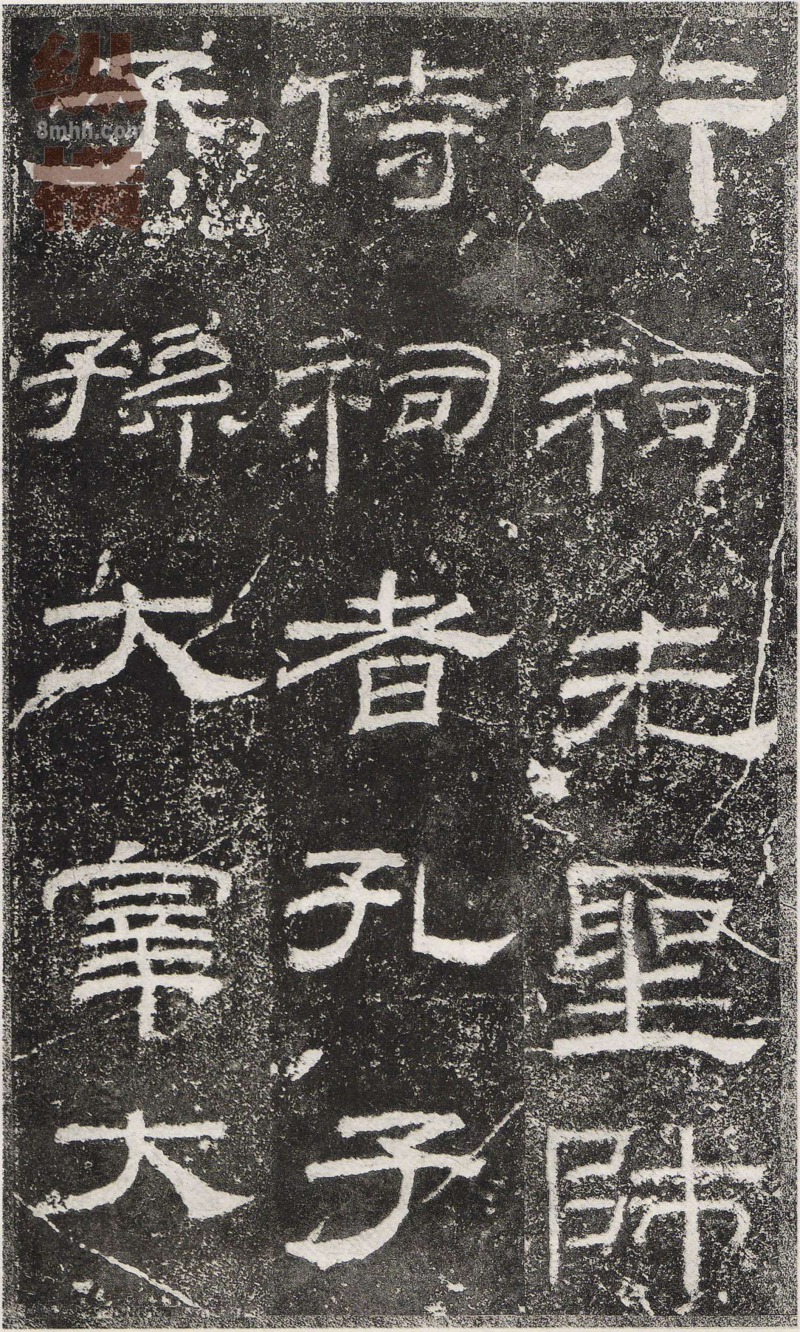 行祠先聖師
侍祠者孔子
孫大宰大
8mhh.com